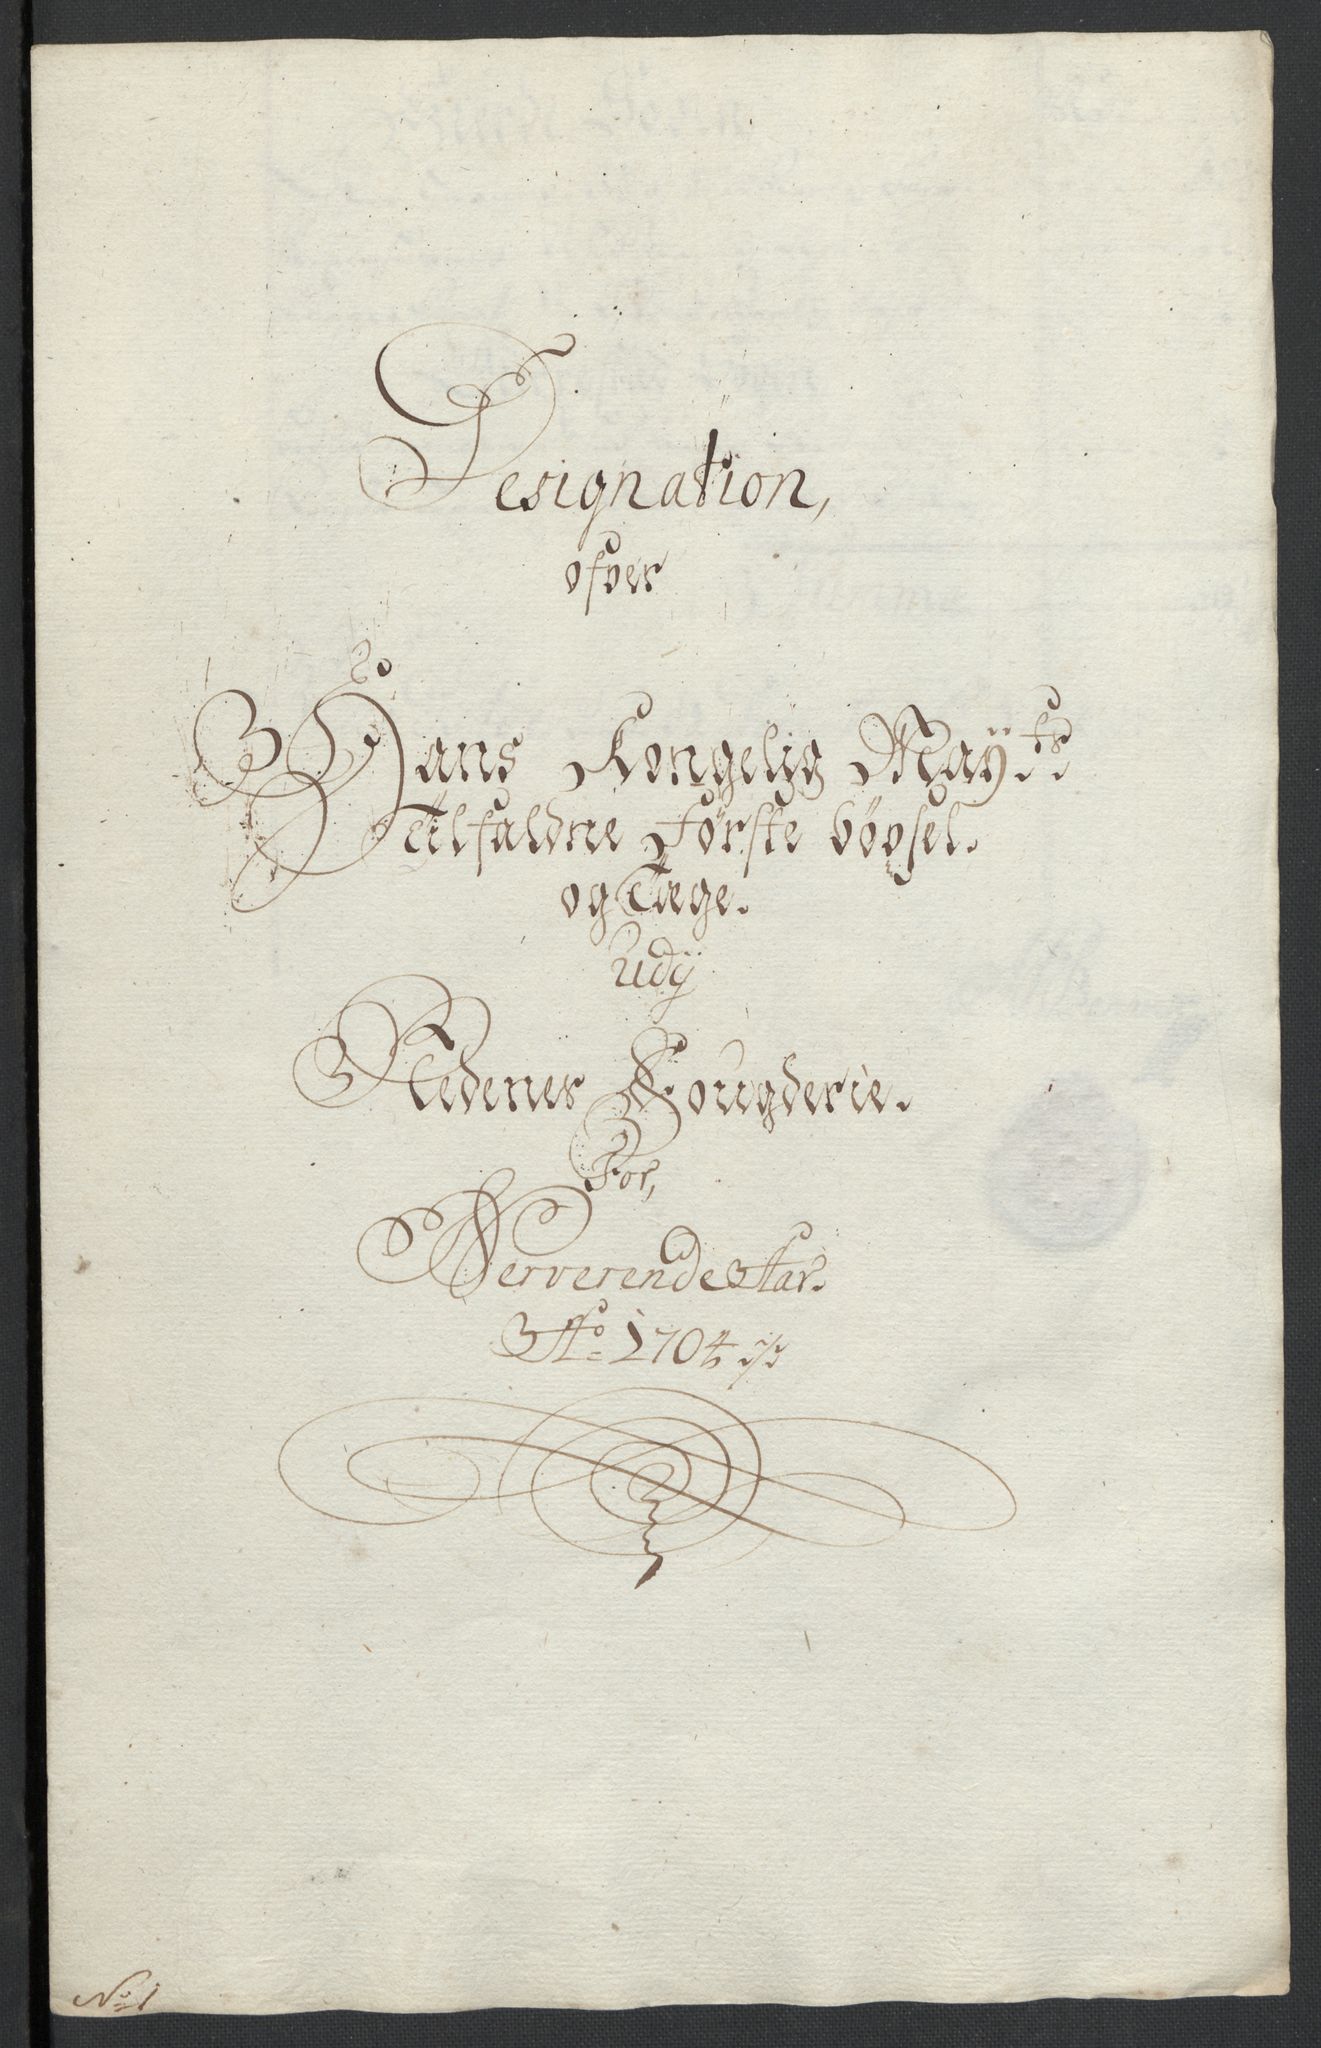 Designation,
ofver
Hans Kongelig Maÿts
Tilfaldne Første bøysel.
og Tæge.
Udÿ
Nedenes Fougderie.
For,
Nerverende Aar.
Ao 1704
No 1